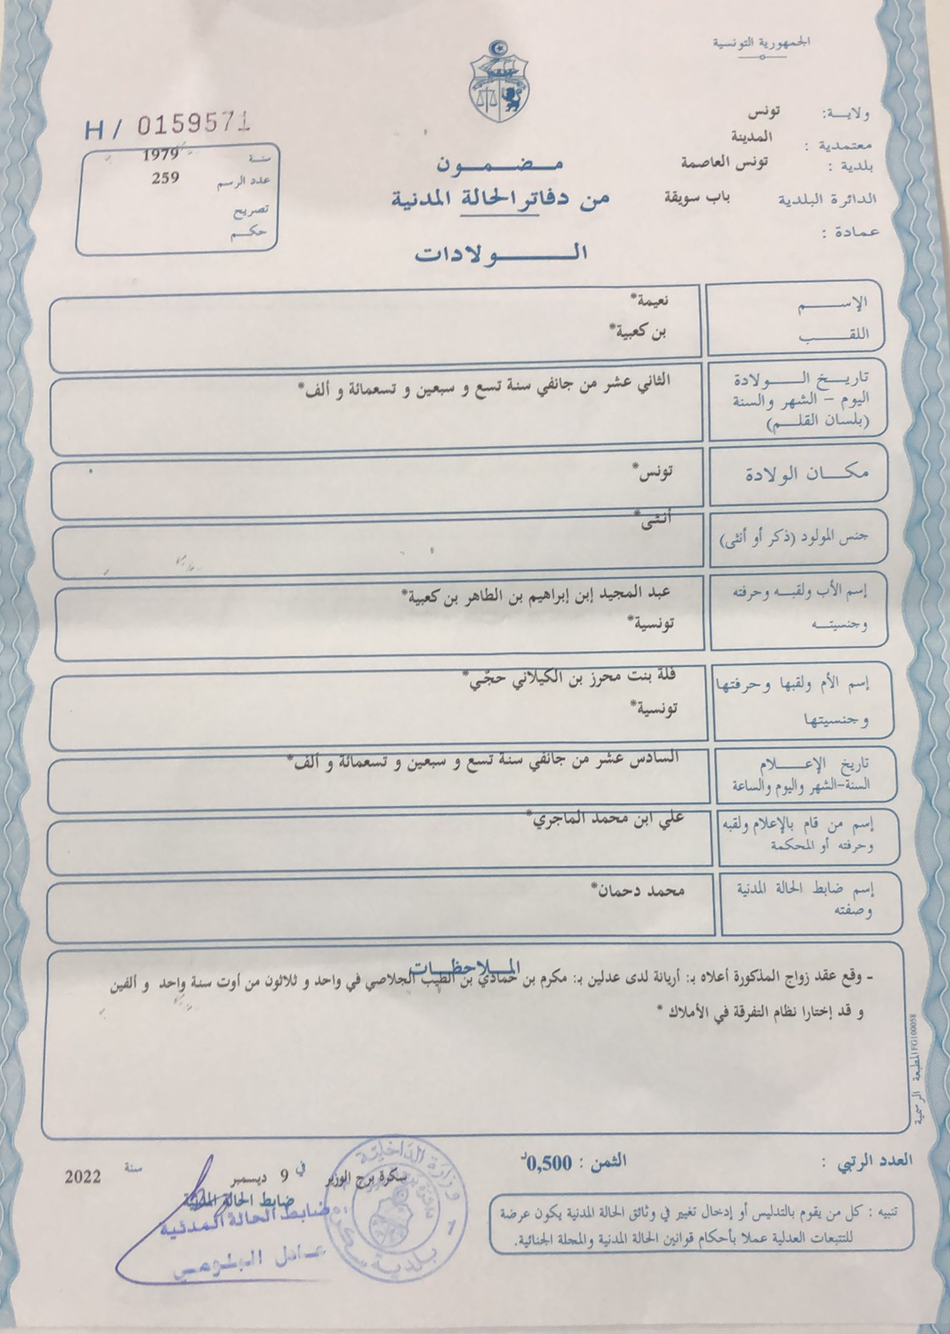 الجمهورية التونسية
ولاية: تونس
معتمدية : المدينة
بلدية : تونس العاصمة
الدائرة البلدية باب سويقة
عمادة :
H/ 0159571
سنة 1979
عدد الرسم 259
تصريح
حكم
مضمون
من دفاتر الحالة المدنية
الولادات
الإسم نعيمة*
اللقب بن كعبية*
تاريخ الولادة
اليوم - الشهر والسنة
(بلسان القلم)
الثاني عشر من جانفي سنة تسع و سبعين و تسعمائة و ألف*
مكان الولادة تونس*
جنس المولود (ذكر أو أنثى) أنثى*
إسم الأب ولقبه وحرفته عبد المجيد إبن إبراهيم بن الطاهر بن كعبية*
وجنسيته تونسية*
إسم الأم ولقبها وحرفتها فلة بنت محرز بن الكيلاني حجّي*
وجنسيتها تونسية*
تاريخ الإعلام
السنة-الشهر واليوم والساعة
السادس عشر من جانفي سنة تسع و سبعين و تسعمائة و ألف*
إسم من قام بالإعلام ولقبه
وحرفته أو المحكمة
علي ابن محمد الماجري*
إسم ضابط الحالة المدنية
وصفته
محمد دحمان*
الملاحظات
- وقع عقد زواج المذكورة أعلاه بـ: أريانة لدى عدلين بـ: مكرم بن حمادي بن الطيب الجلاصي في واحد و ثلاثون من أوت سنة واحد و ألفين
و قد إختارا نظام التفرقة في الأملاك *
المطبعة الرسمية FG100058
العدد الرتبي :
الثمن : 0,500د
سكرة برج الوزير في 9 ديسمبر سنة 2022
ضابط الحالة المدنية
ضابط الحالة المدنية
عادل البلومي
وزارة الداخلية
بلدية سكرة
تنبيه : كل من يقوم بالتدليس أو إدخال تغيير في وثائق الحالة المدنية يكون عرضة
للتتبعات العدلية عملا بأحكام قوانين الحالة المدنية والمجلة الجنائية.